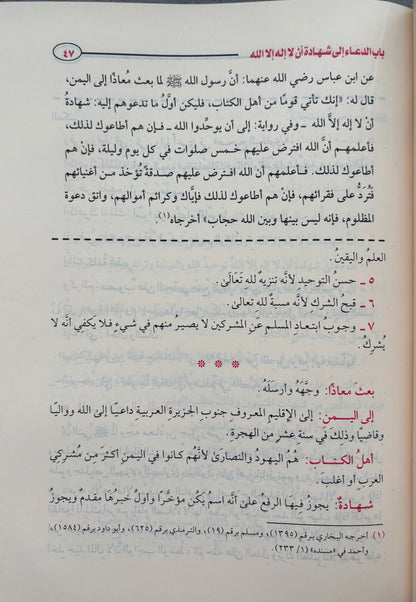 باب الدعاء إلى شهادة أن لا إله إلا الله
٤٧
عن ابن عباس رضي الله عنهما: أنَّ رسول الله ﷺ لما بعث مُعاذًا إلى اليمن،
قال له: «إنك تأتي قومًا من أهل الكتاب، فليكن أولُ ما تدعوهم إليه: شهادةُ
أنْ لا إله إلَّا الله ـ وفي رواية: إلى أن يوحِّدوا الله ـ فإن هم أطاعوك لذلك،
فأعلمهم أنَّ الله افترض عليهم خمس صلوات في كل يوم وليلة، فإنْ هم
أطاعوك لذلك. فأعلمهم أن الله افترض عليهم صدقة تُؤخذ من أغنيائهم
فتُرَدُّ على فقرائهم، فإنْ هم أطاعوك لذلك فإيَّاك وكرائم أموالهم، واتق دعوة
المظلوم، فإنه ليس بينها وبين الله حجاب» أخرجاه(١).
العلمُ واليقينُ.
٥ ـ حسنُ التوحيدِ لأنَّه تنزيهٌ للهِ تَعَالَىٰ.
٦ ـ قبحُ الشركِ لأنَّه مسبةٌ للهِ تعالىٰ.
٧ ـ وجوبُ ابتعادِ المسلمِ عن المشركين لا يصيرُ منهم في شيءٍ فلا يكفي أنَّه لا
يُشركُ.
* * *
بعثَ معاذًا: وجَّهَهُ وأرسَلَهُ.
إلى اليمن: إلى الإقليمِ المعروفِ جنوبَ الجزيرةِ العربيةِ داعيًا إلىٰ اللهِ وواليًا
وقاضيًا وذلك في سنةِ عشرٍ من الهجرةِ.
أهلُ الكتاب: هُمُ اليهودُ والنصارىٰ لأنَّهم كانوا في اليمنِ أكثرَ من مُشركي
العربِ أو أغلبَ.
شهادةُ: يجوزُ فِيهَا الرفعُ علىٰ أنَّه اسمُ يَكُن مؤخَّرًا وأولُ خبرُهَا مقدمٌ ويجوزُ
(١) أخرجه البخاري برقم (١٣٩٥)، ومسلم برقم (١٩)، والترمذي برقم (٦٢٥)، وأبو داود برقم (١٥٨٤)،
وأحمد في «مسنده» (١/ ٢٣٣).